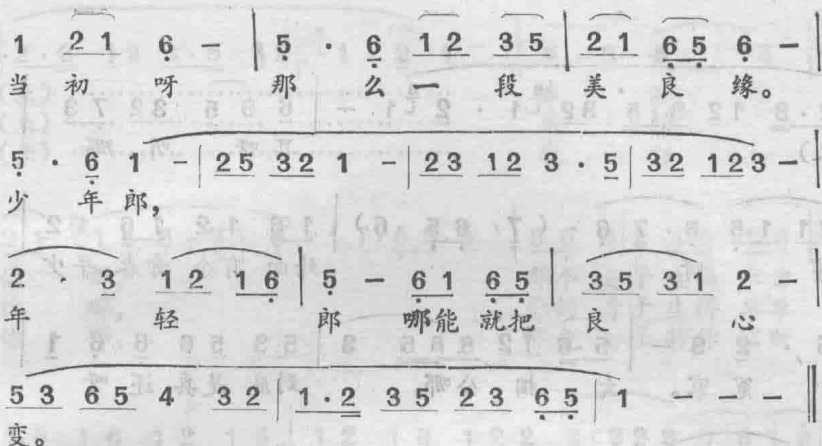 1 2 1 6 – | 5 · 6 1 2 3 5 | 2 1 6 5 6 – |
当 初 呀 那 么 一 段 美 良 缘。
5 · 6 1 – | 2 5 3 2 1 – | 2 3 1 2 3 · 5 | 3 2 1 2 3 – |
少 年 郎,
2 · 3 1 2 1 6 | 5 – 6 1 6 5 | 3 5 3 1 2 – |
年 轻 郎 哪能 就把 良 心
5 3 6 5 4 3 2 | 1 · 2 3 5 2 3 6 5 | 1 – – – ‖
变。